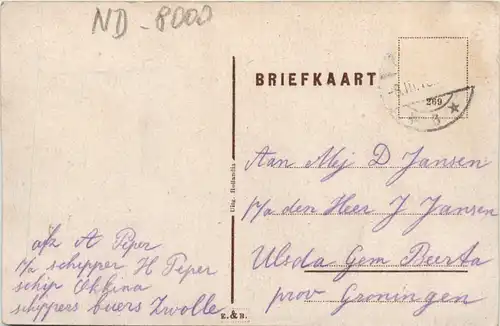 ND-8000
BRIEFKAART
269
Aan Mej D Jansen
p/a den Heer J Jansen
Ulsda Gem Beerta
prov Groningen
afz A Peper
p/a schipper H Peper
schip Okkina
schippers buers Zwolle
Uitg. Hollandia
E. & B.